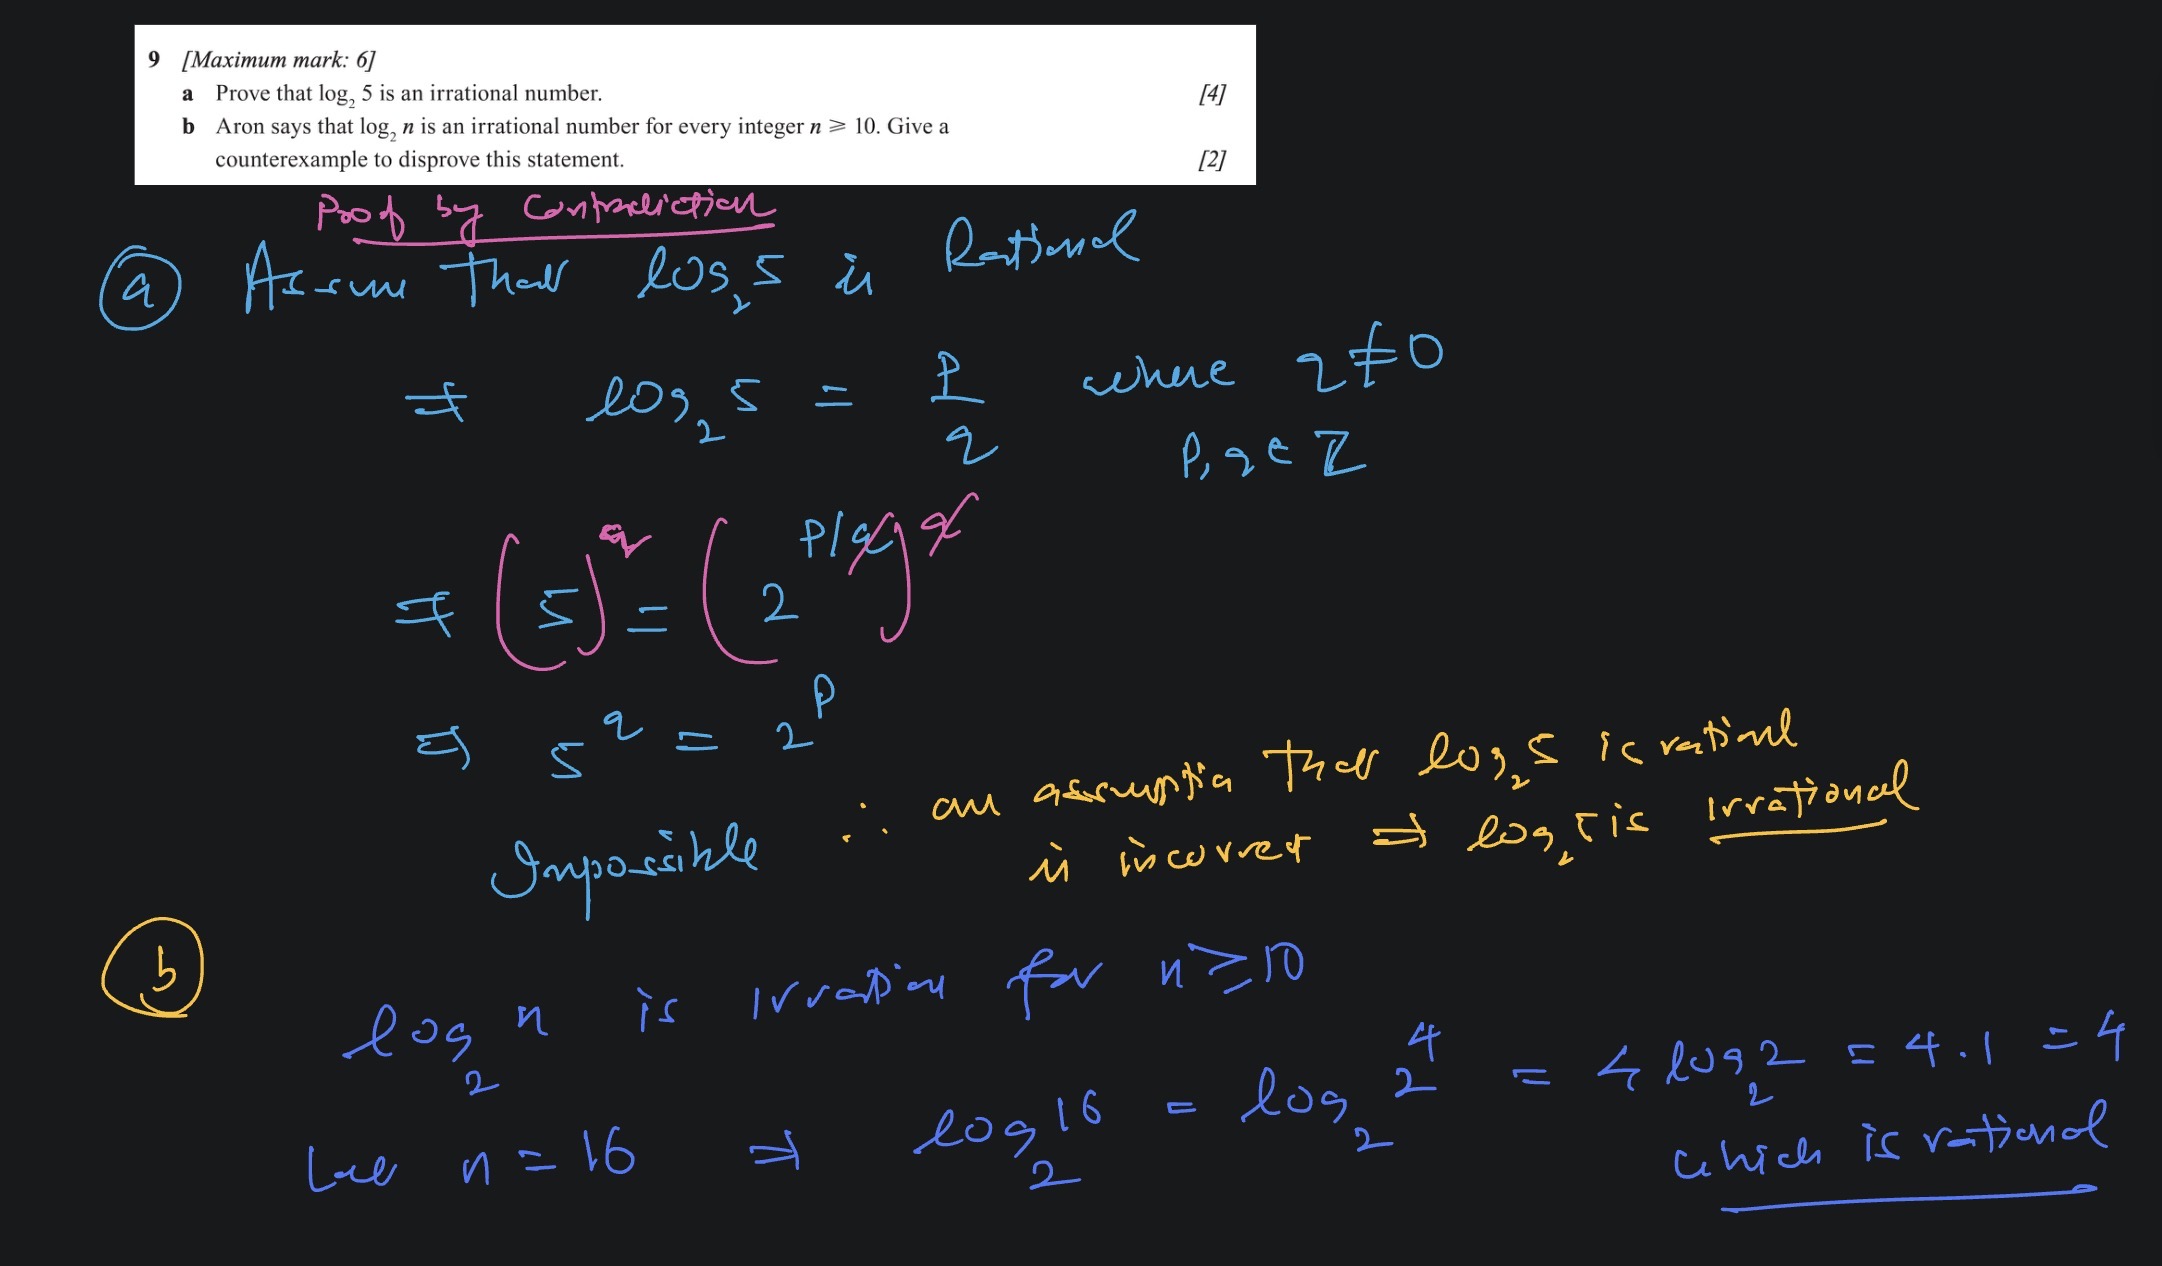 9 [Maximum mark: 6]
a Prove that log₂ 5 is an irrational number. [4]
b Aron says that log₂ n is an irrational number for every integer n ⩾ 10. Give a
counterexample to disprove this statement. [2]
Proof by Contradiction
(a) Assume that log₂5 is Rational
⇒ log₂5 = P/q where q ≠ 0
P, q ∈ ℤ
⇒ (5)^q = (2^(P/q))^q
⇒ 5^q = 2^P
Impossible ∴ our assumption that log₂5 is rational
is incorrect ⇒ log₂5 is irrational
(b)
log₂ n is irration for n ≥ 10
Let n = 16 ⇒ log₂16 = log₂2⁴ = 4 log₂2 = 4.1 = 4
which is rational